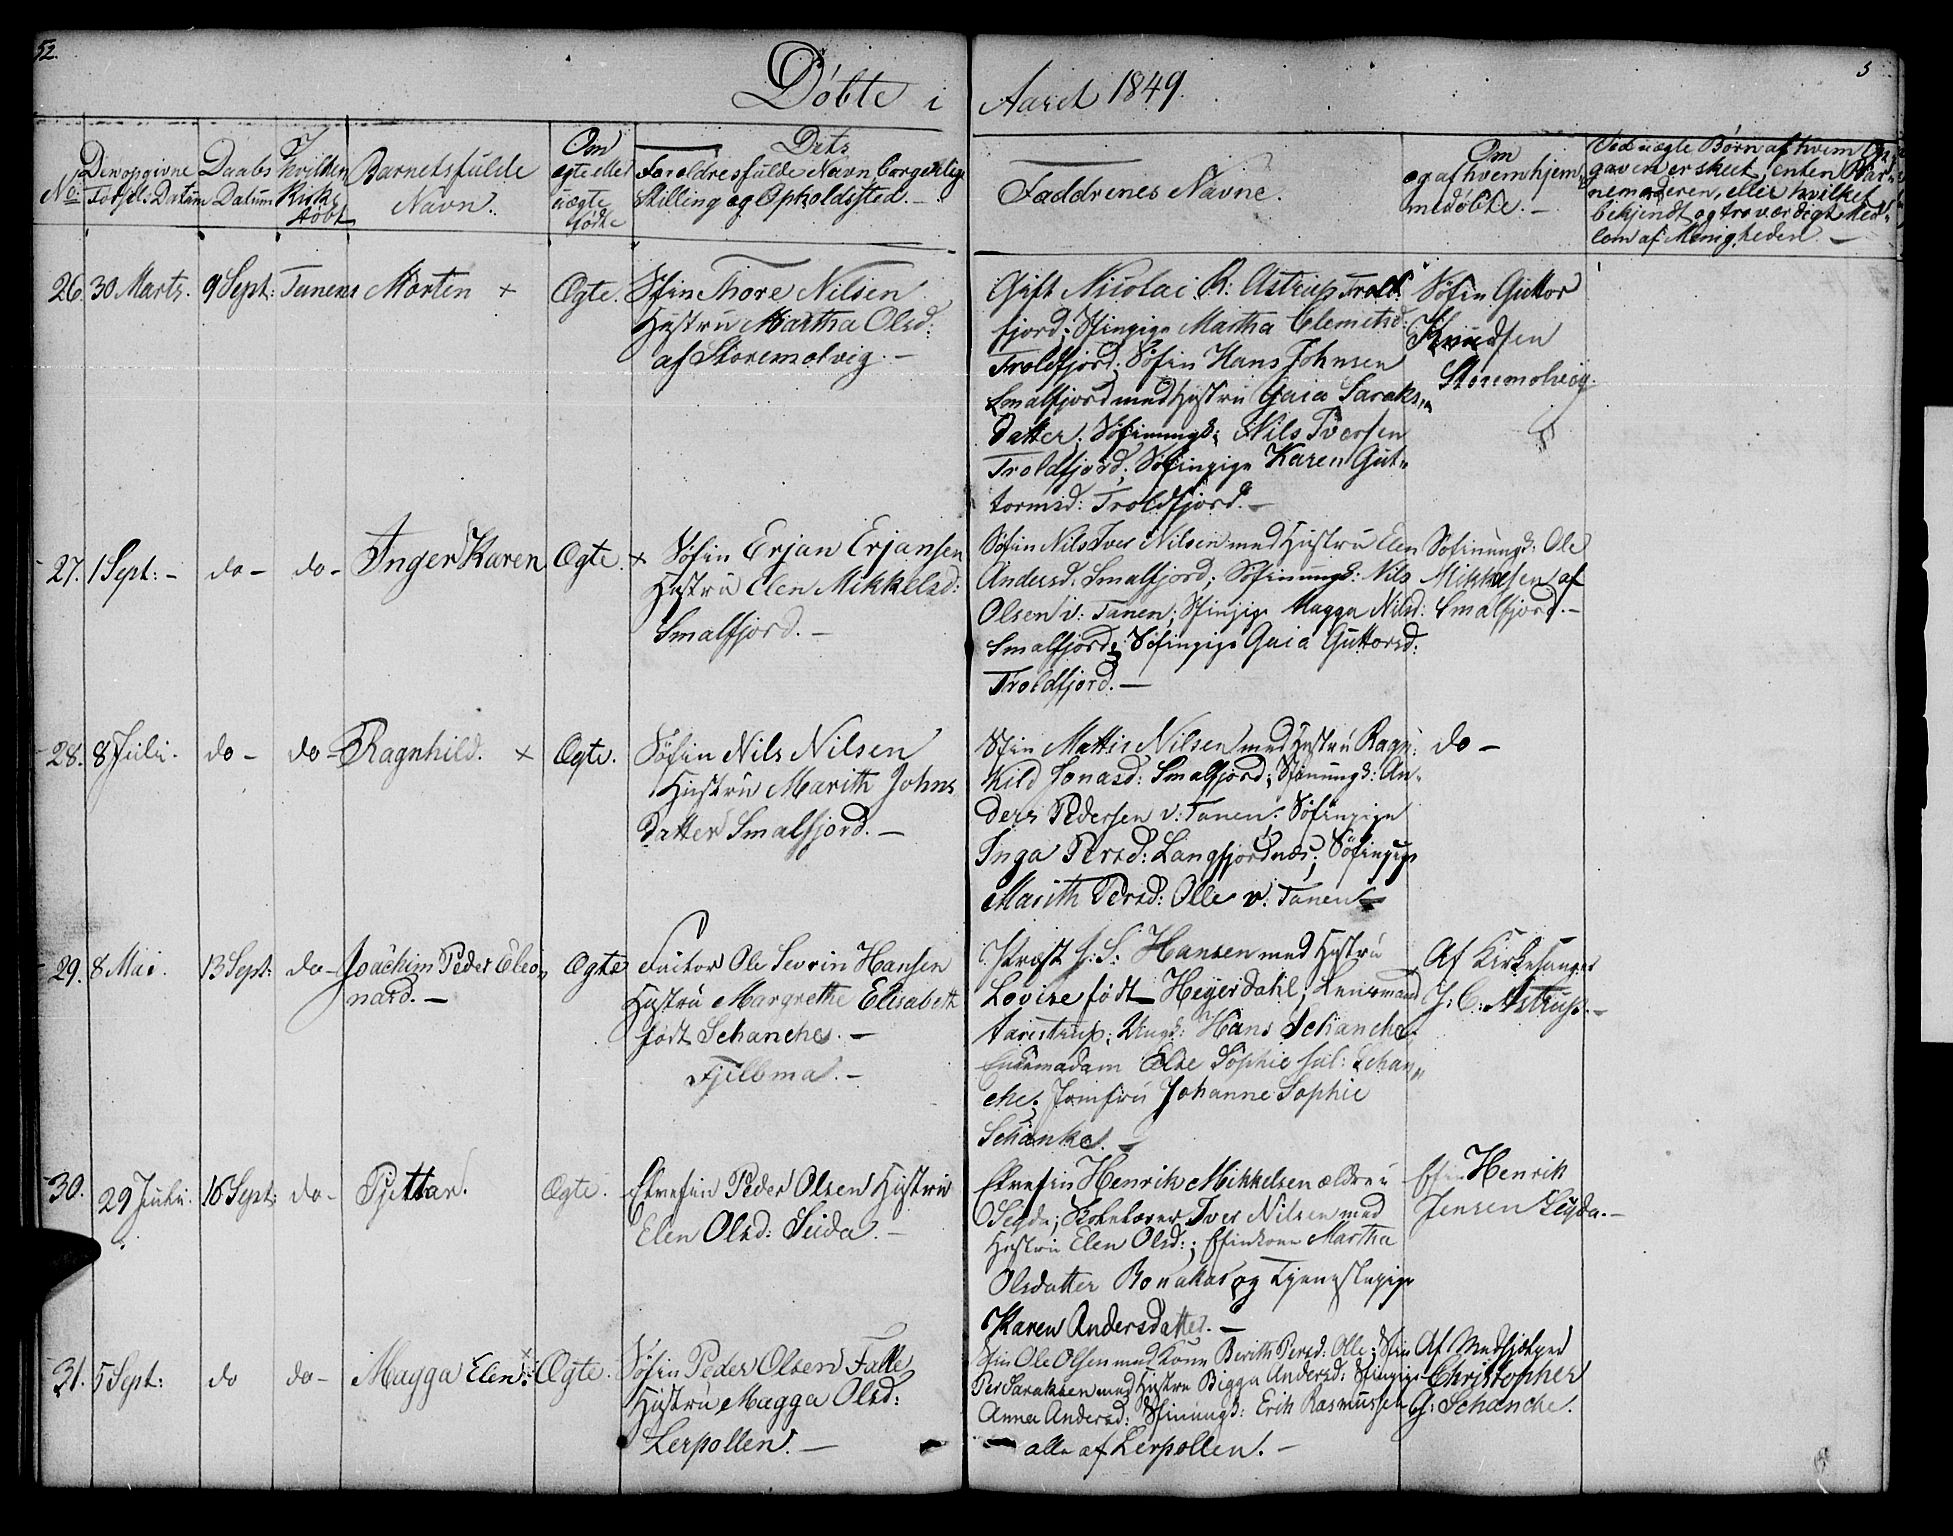 52.
Döbte i Aaret 1849.
5
No:
Den opgivne Fødsel. Datum
Daabs Datum
I hvilken Kirke døbt
Barnets fulde Navn.
Om ægte eller uægte fødte
Dets Forældres fulde Navn, borgerlige Stilling og Opholdssted. -
Faddrenes Navne.
Om og af hvem hjemmedøbte. -
Ved uægte Børn af hvem Opgaven er skeet, enten Barnemoderen, eller hvilket bekjendt og troværdigt Medlem af Menigheden. -
26. 30 Marts. 9 Sept: Tanens Morten + Ægte.
Sfin Thore Nilsen
Hustru Martha Olsd:
af Storemolvig. -
Gift Nicolai R. Astrup Trold
fjord; Sfinpige Martha Clemetsd:
Troldfjord; Söfin Hans Johnsen
Smalfjord med Hustru Gaia Saraks
datter; Söfinungk: Nils Iversen
Troldfjord; Söfinpige Karen Gut„
tormsd: Troldfjord. -
Söfin Guttor
Knudsen
Storemolvig.
27. 1 Sept: - do - do - Inger Karen Ægte. +
Söfin Erjan Erjansen
Hustru Elen Mikkelsd:
Smalfjord. -
Söfin Nils Iver Nilsen med Hustru Elen
Andersd: Smalfjord; Söfinungk: Nils
Olsen v: Tanen; Sfinpige Magga Nilsd:
Smalfjord; Söfinpige Gaia Guttorsd:
Troldfjord. -
Söfinungk: Ole
Mikkelsen af
Smalfjord. -
28. 8 Juli. do - do - Ragnhild. + Ægte.
Söfin Nils Nilsen
Hustru Marith Johns
datter Smalfjord. -
Sfin Mattis Nilsen med Hustru Ragn
hild Jonasd: Smalfjord; Sfinungk: An„
ders Pedersen v: Tanen; Söfinpige
Inga Persd: Langfjordnæs; Söfinpige
Marith Persd: Olle v: Tanen -
do -
29. 8 Mai. 13 Sept: do - Joachim Peder Eleo„
nard. - Ægte
Factor Ole Sevrin Hansen
Hustru Margrethe Elisabeth
født Schanche. -
Fjelbma. -
Provst J. S: Hansen med Hustru
Lovise født Heyerdahl; Lensmand
Aarestrup; Ungk: Hans Schanche
Enkemadam Else Sophie sal: Schan„
che; Jomfru Johanne Sophie
Schanke. -
Af Kirkesanger
J: C: Astrup. -
30. 29 Juli. 16 Sept: do - Pjettar. Ægte.
Elvefin Peder Olsen Hustru
Elen Olsd: Siida. -
Elvefin Henrik Mikkelsen ældre i
Segda; Skolelærer Iver Nilsen med
Hustru Elen Olsd:; Efinkone Martha
Olsdatter Bonakas og Tjenestepige
Karen Andersdatter. -
Efin Henrik
Jensen Sigda. -
31. 5 Sept: do do - Magga Elen + Ægte.
Söfin Peder Olsen Falle
Hustru Magga Olsd:
Lerpollen. -
Sfin Ole Olsen med Kone Berith Persd: Olle; Sfin
Per Saraksen med Hustru Bigga Andersd: Sfinpige
Anna Andersd: Sfinungk: Erik Rasmussen
- alle af Lerpollen. -
Af Medhjelper
Christopher
G: Schanche.